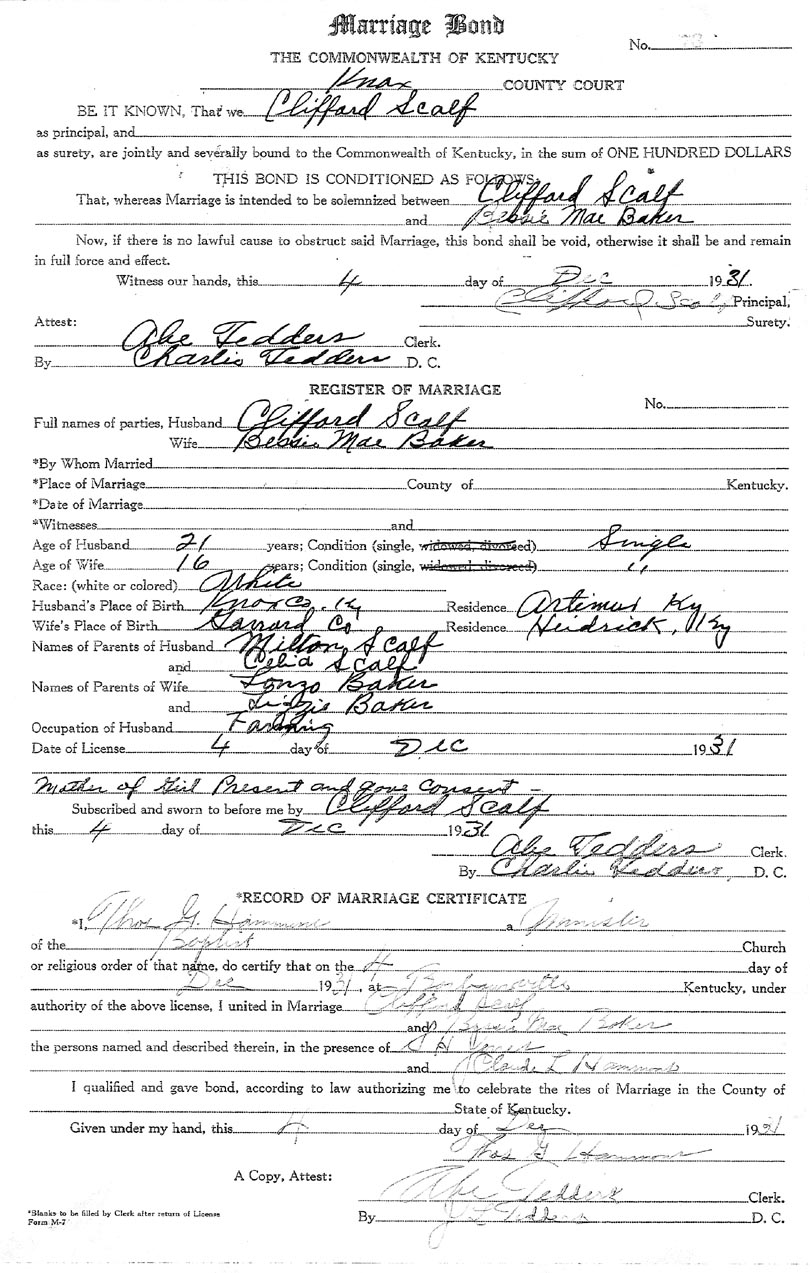 Marriage Bond
No. 78
THE COMMONWEALTH OF KENTUCKY
Knox COUNTY COURT
BE IT KNOWN, That we Clifford Scalf
as principal, and
as surety, are jointly and severally bound to the Commonwealth of Kentucky, in the sum of ONE HUNDRED DOLLARS
THIS BOND IS CONDITIONED AS FOLLOWS:
That, whereas Marriage is intended to be solemnized between Clifford Scalf
and Bessie Mae Baker
Now, if there is no lawful cause to obstruct said Marriage, this bond shall be void, otherwise it shall be and remain
in full force and effect.
Witness our hands, this 4 day of Dec 1931.
Clifford Scalf Principal,
Surety.
Attest:
Abe Tedders Clerk.
By Charlie Tedders D. C.
REGISTER OF MARRIAGE
No.
Full names of parties, Husband Clifford Scalf
Wife Bessie Mae Baker
*By Whom Married
*Place of Marriage County of Kentucky.
*Date of Marriage
*Witnesses and
Age of Husband 21 years; Condition (single, widowed, divorced) Single
Age of Wife 16 years; Condition (single, widowed, divorced) "
Race: (white or colored) White
Husband's Place of Birth Knox Co. Ky Residence Artimus Ky
Wife's Place of Birth Garrard Co Residence Heidrick, Ky
Names of Parents of Husband Milton Scalf
and Celia Scalf
Names of Parents of Wife Lonzo Baker
and Lizzie Baker
Occupation of Husband Farming
Date of License 4 day of Dec 1931
Mother of Girl Present and gave Consent -
Subscribed and sworn to before me by Clifford Scalf
this 4 day of Dec 1931
Abe Tedders Clerk.
By Charlie Tedders, D. C.
*RECORD OF MARRIAGE CERTIFICATE
*I, Thos G. Hammons a Minister
of the Baptist Church
or religious order of that name, do certify that on the 4 day of
Dec 1931, at Barbourville Kentucky, under
authority of the above license, I united in Marriage Clifford Scalf
and Bessie Mae Baker
the persons named and described therein, in the presence of H Jones
and Claude L Hammons
I qualified and gave bond, according to law authorizing me to celebrate the rites of Marriage in the County of
State of Kentucky.
Given under my hand, this 4 day of Dec 1931
Thos G Hammons
A Copy, Attest:
Abe Tedders Clerk.
By J L Tedders D. C.
*Blanks to be filled by Clerk after return of License
Form M-7